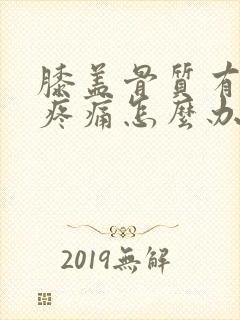 膝盖骨質有
疼痛怎麼办
2019無解